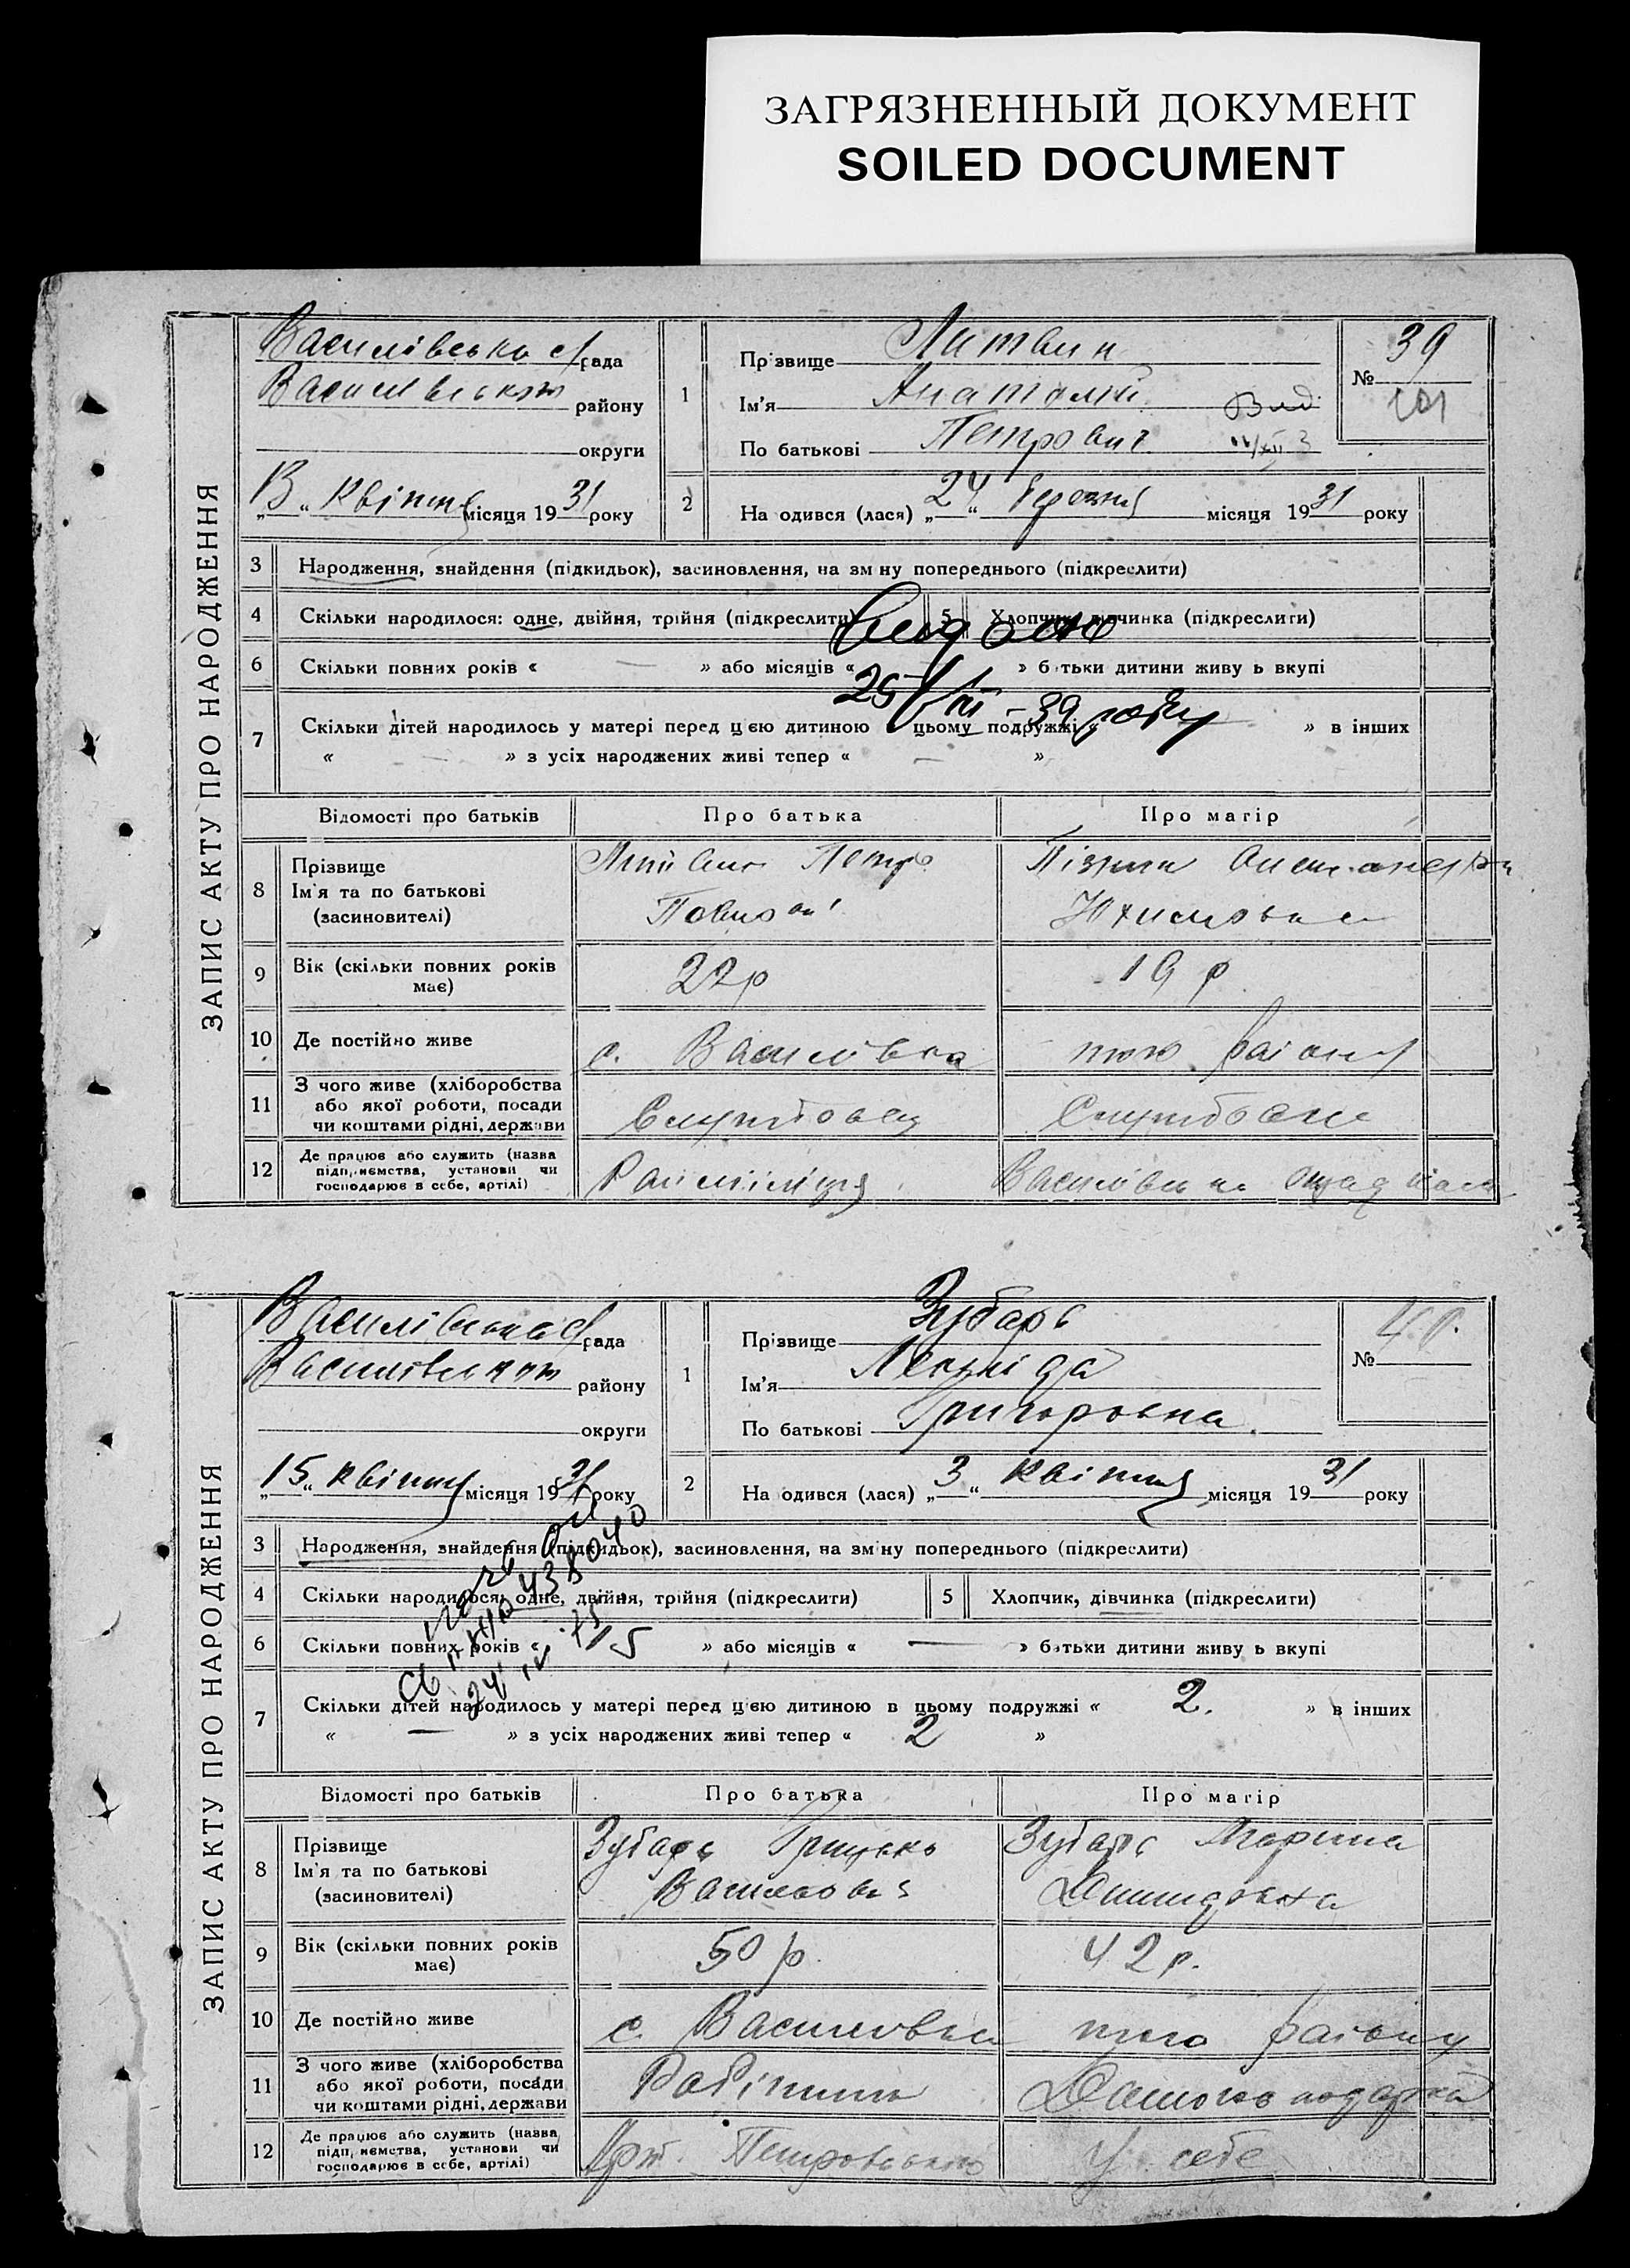 ЗАГРЯЗНЕННЫЙ ДОКУМЕНТ
SOILED DOCUMENT
ЗАПИС АКТУ ПРО НАРОДЖЕННЯ
Василівська с/рада
Василівського району
округи
„13“ квітня місяця 1931 року
1
Прізвище Литвин
Ім'я Анатолій
По батькові Петрович
№ 39
2
На одився (лася) „24“ березня місяця 1931 року
3 Народження, знайдення (підкидьок), засиновлення, на зм ну попереднього (підкреслити)
4 Скільки народилося: одне, двійня, трійня (підкреслити)
5 Хлопчик, дівчинка (підкреслити)
Видано
6 Скільки повних років « — » або місяців « — » б тьки дитини живу ь вкупі
7 Скільки дітей народилось у матері перед цією дитиною в цьому подружжі « » в інших
« — » з усіх народжених живі тепер « — »
Відомості про батьків Про батька Про матір
8 Прізвище
Ім'я та по батькові
(засиновителі)
Литвин Петро
9 Вік (скільки повних років має)
22 р
19 р
10 Де постійно живе
с. Василівка
того району
11 З чого живе (хліборобства
або якої роботи, посади
чи коштами рідні, держави
Службовец
Службовец
12 Де працює або служить (назва
підп иємства, установи чи
господарює в себе, артілі)
Райміліція
ЗАПИС АКТУ ПРО НАРОДЖЕННЯ
Василівська с/рада
Василівського району
округи
„15“ квітня місяця 1931 року
1
Прізвище Зубарь
Ім'я Леоніда
По батькові Григоровна.
№ 40.
2
На одився (лася) „3“ квітня місяця 1931 року
3 Народження, знайдення (підкидьок), засиновлення, на зміну попереднього (підкреслити)
4 Скільки народилося: одне, двійня, трійня (підкреслити)
5 Хлопчик, дівчинка (підкреслити)
6 Скільки повних років « 15 » або місяців « — » батьки дитини живу ь вкупі
7 Скільки дітей народилось у матері перед цією дитиною в цьому подружжі « 2. » в інших
« — » з усіх народжених живі тепер « 2 »
Відомості про батьків Про батька Про матір
8 Прізвище
Ім'я та по батькові
(засиновителі)
Зубарь Грицько
Василович
Зубарь Марина
Демидовна
9 Вік (скільки повних років має)
50 р.
42 р.
10 Де постійно живе
с. Василовка
того району
11 З чого живе (хліборобства
або якої роботи, посади
чи коштами рідні, держави
Робітник
Домогосподарка
12 Де працює або служить (назва
підп иємства, установи чи
господарює в себе, артілі)
Арт. Петровського
У себе